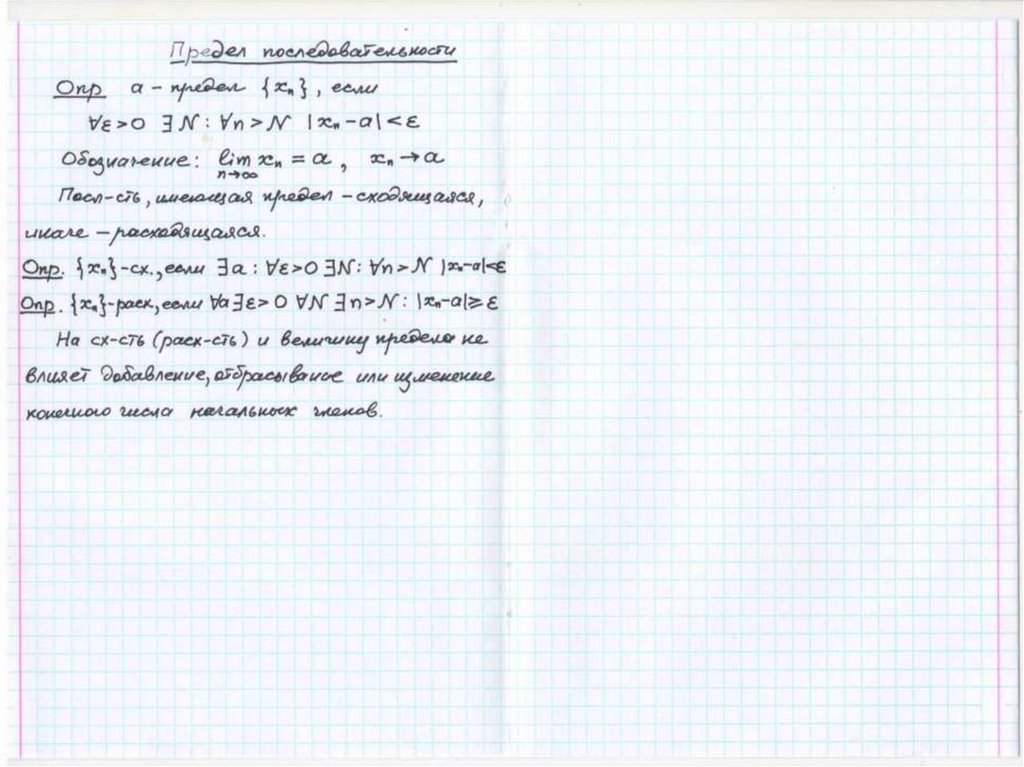 Предел последовательности
Опр a – предел {xₙ}, если
∀ε>0 ∃N: ∀n>N |xₙ-a|<ε
Обозначение: lim xₙ = a, xₙ→a
n→∞
Посл-сть, имеющая предел – сходящаяся,
иначе – расходящаяся.
Опр. {xₙ}-сх., если ∃a: ∀ε>0 ∃N: ∀n>N |xₙ-a|<ε
Опр. {xₙ}-расх, если ∀a ∃ε>0 ∀N ∃n>N: |xₙ-a|≥ε
На сх-сть (расх-сть) и величину предела не
влияет добавление, отбрасывание или изменение
конечного числа начальных членов.